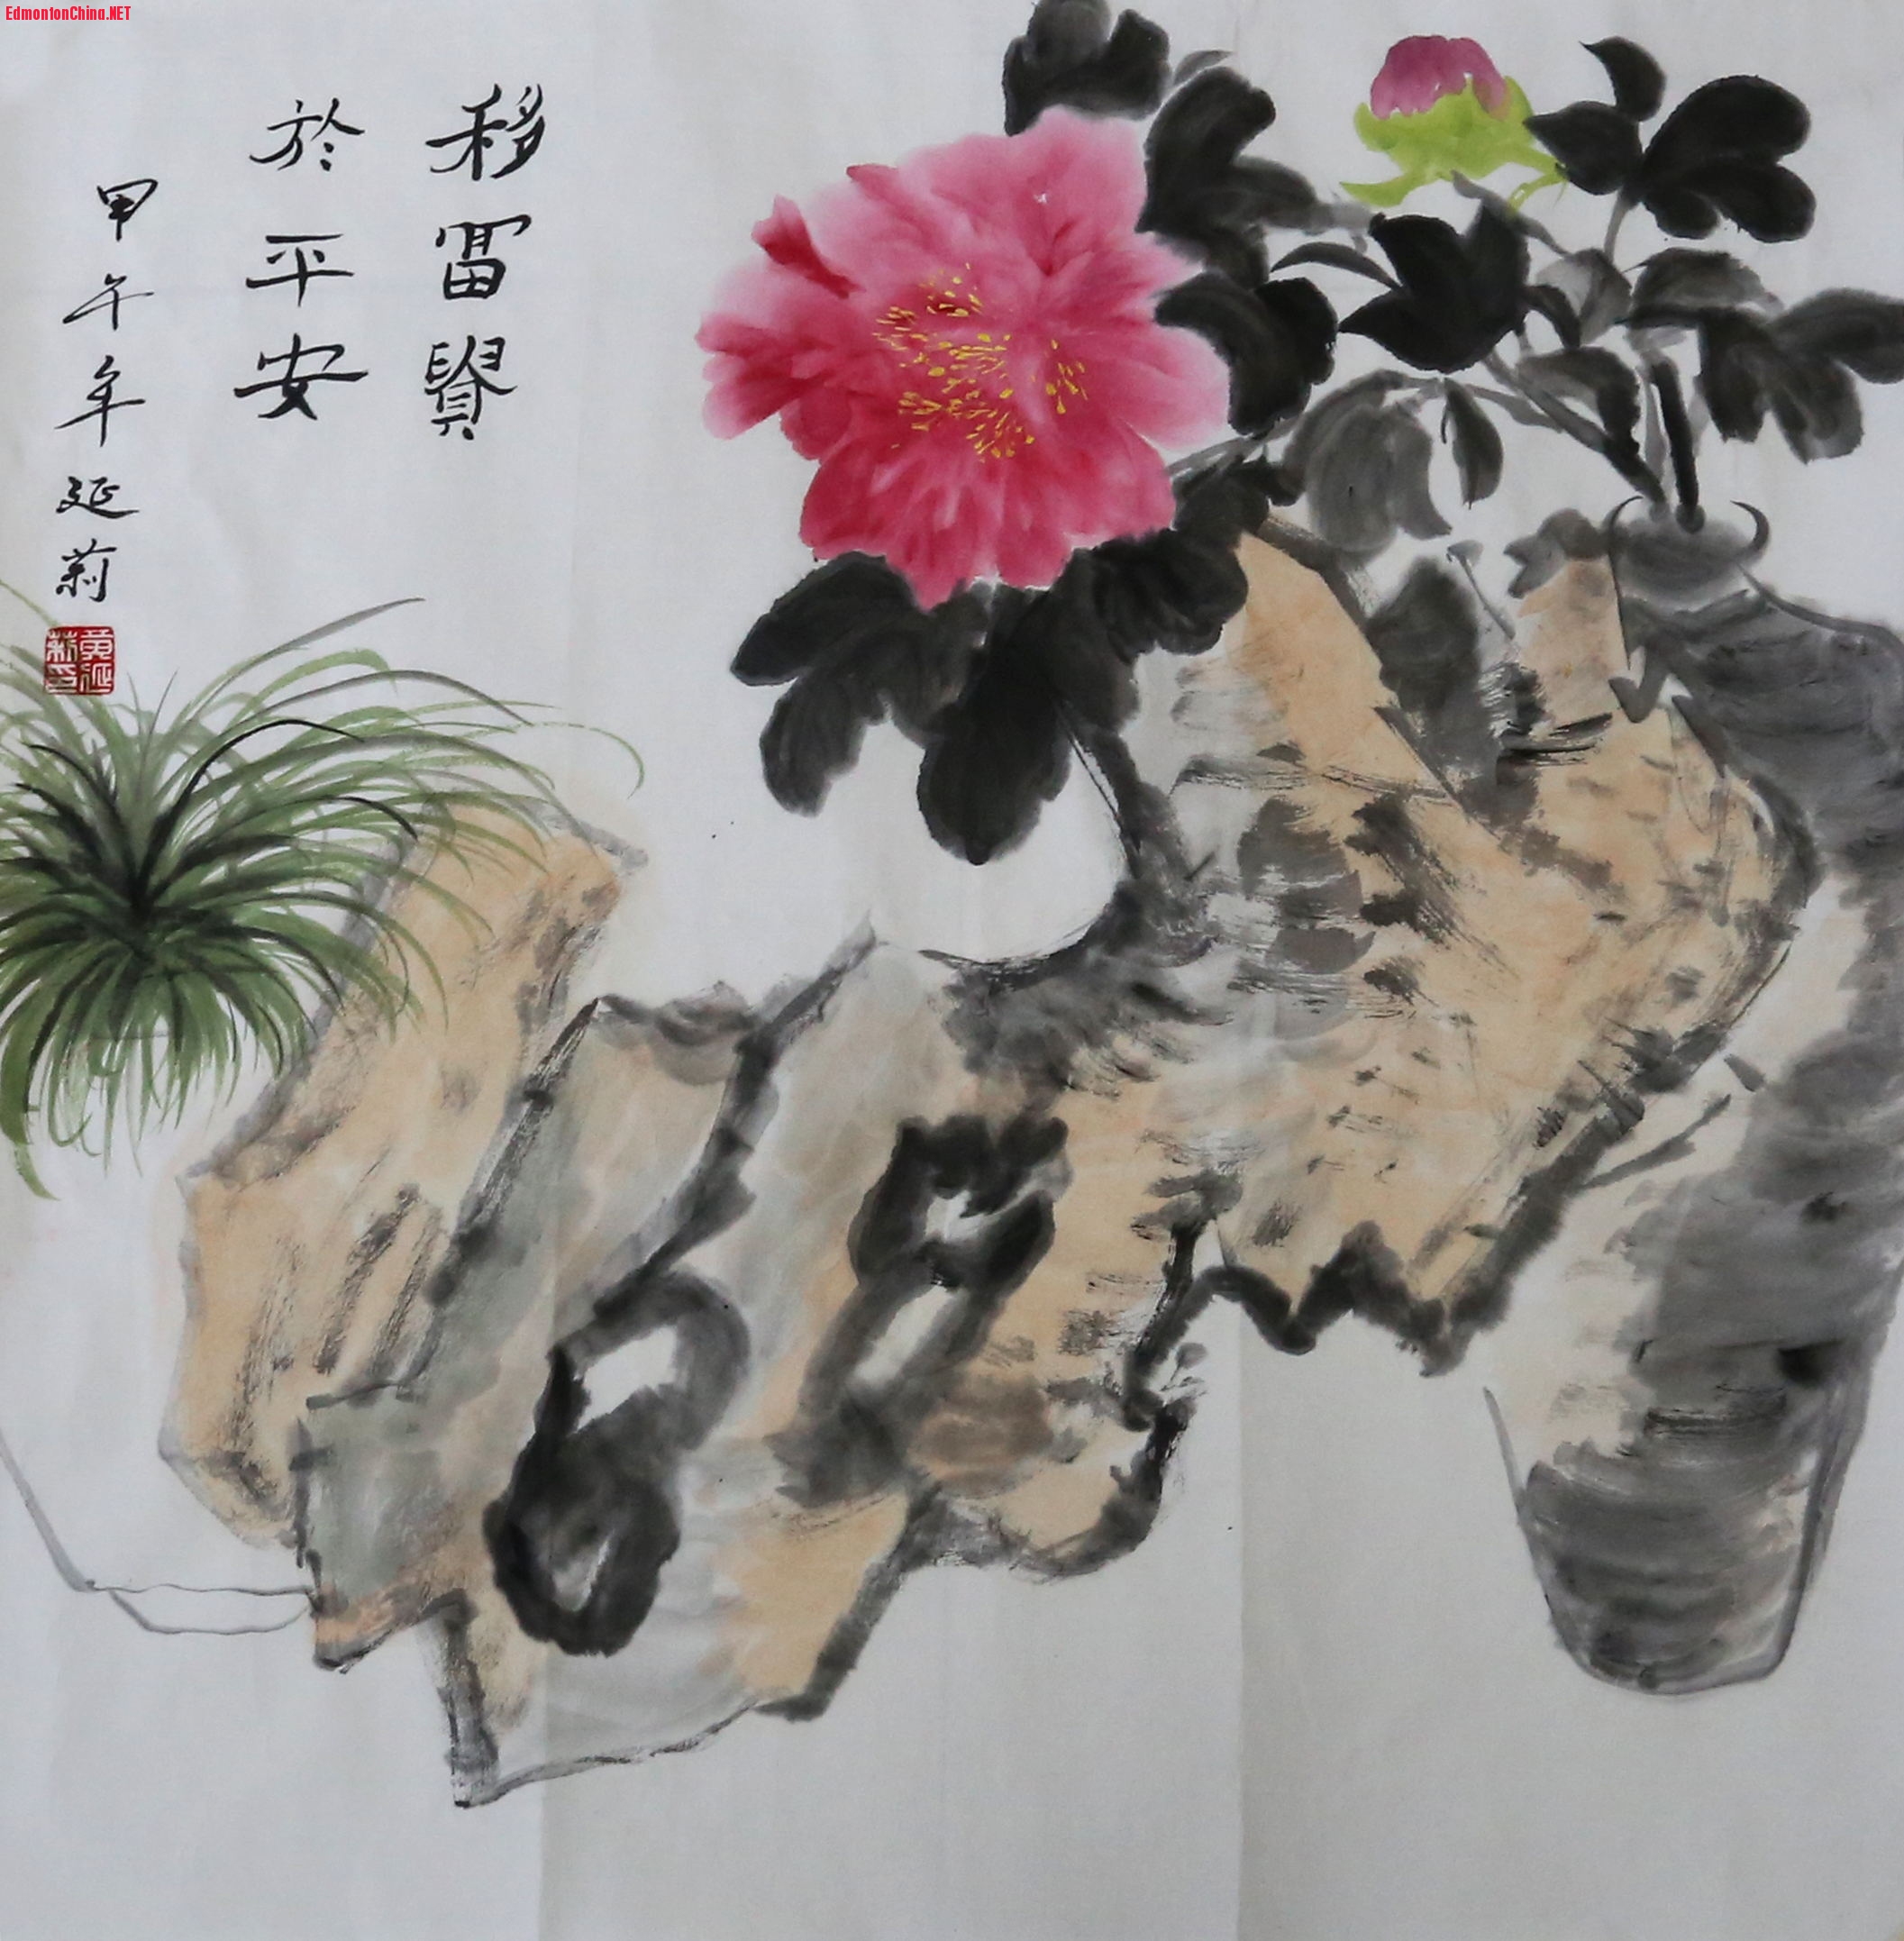 EdmontonChina.NET
移冨貴
於平安
甲午年延莉
黄延莉印